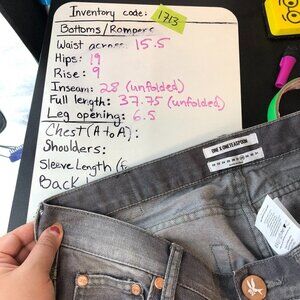 Inventory code: 1713
Bottoms/Rompers
Waist across: 15.5
Hips: 19
Rise: 9
Inseam: 28 (unfolded)
Full length: 37.75 (unfolded)
Leg opening: 6.5
Chest (A to A):
Shoulders:
Sleeve Length (
Back
ONE X ONETEASPOON